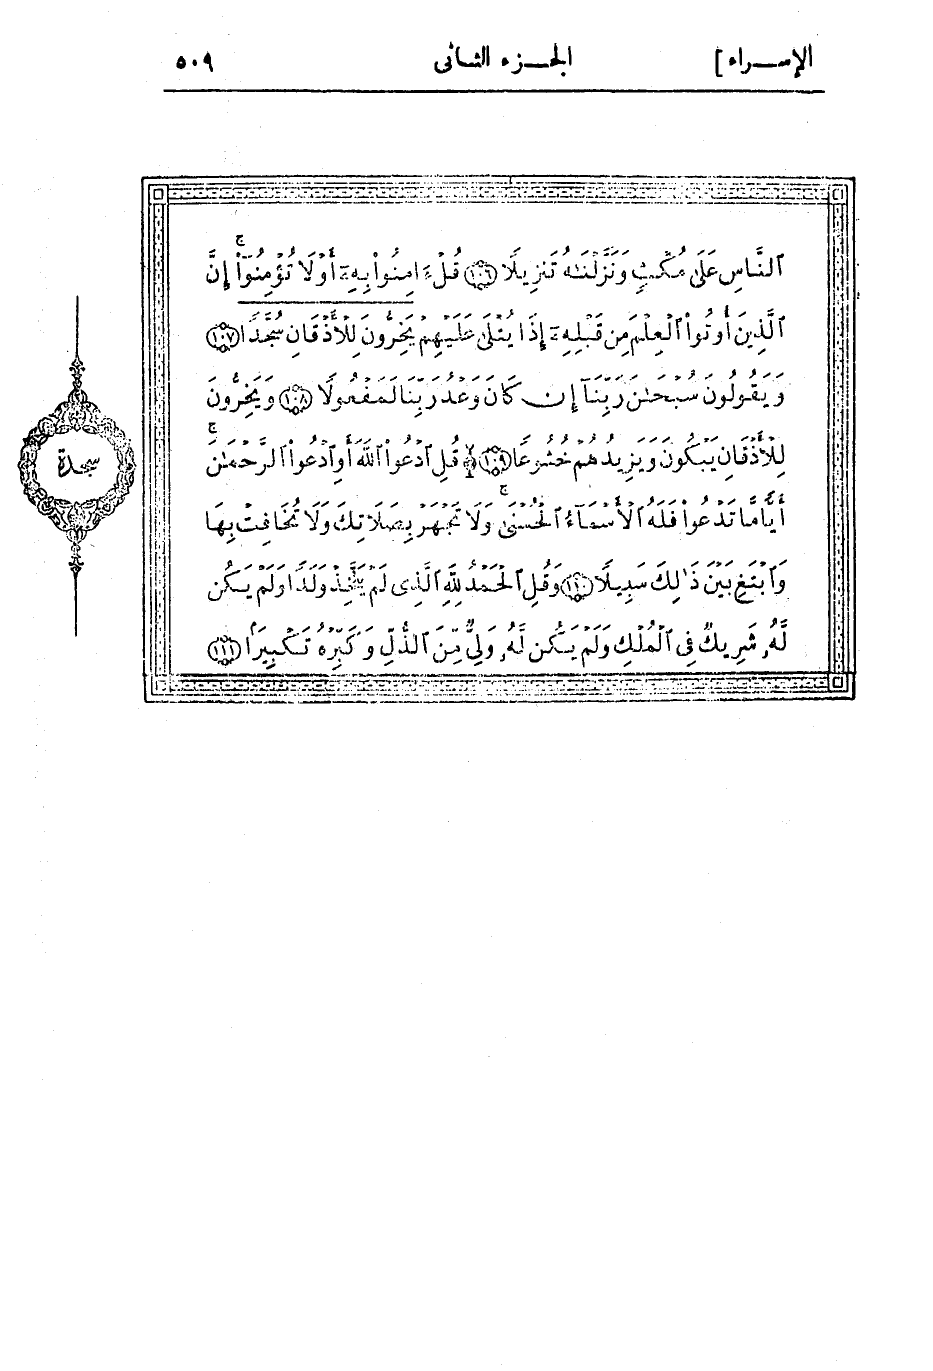 الإســراء] الجــزء الثـانى ٥٠٩
ٱلنَّاسِ عَلَىٰ مُكْثٍ وَنَزَّلْنَـٰهُ تَنزِيلًا ١٠٦ قُلْ ءَامِنُوا۟ بِهِۦٓ أَوْ لَا تُؤْمِنُوٓا۟ ۚ إِنَّ
ٱلَّذِينَ أُوتُوا۟ ٱلْعِلْمَ مِن قَبْلِهِۦٓ إِذَا يُتْلَىٰ عَلَيْهِمْ يَخِرُّونَ لِلْأَذْقَانِ سُجَّدًا ١٠٧
وَيَقُولُونَ سُبْحَـٰنَ رَبِّنَآ إِن كَانَ وَعْدُ رَبِّنَا لَمَفْعُولًا ١٠٨ وَيَخِرُّونَ
لِلْأَذْقَانِ يَبْكُونَ وَيَزِيدُهُمْ خُشُوعًا ١٠٩ قُلِ ٱدْعُوا۟ ٱللَّهَ أَوِ ٱدْعُوا۟ ٱلرَّحْمَـٰنَ ۖ
أَيًّا مَّا تَدْعُوا۟ فَلَهُ ٱلْأَسْمَآءُ ٱلْحُسْنَىٰ ۚ وَلَا تَجْهَرْ بِصَلَاتِكَ وَلَا تُخَافِتْ بِهَا
وَٱبْتَغِ بَيْنَ ذَٰلِكَ سَبِيلًا ١١٠ وَقُلِ ٱلْحَمْدُ لِلَّهِ ٱلَّذِى لَمْ يَتَّخِذْ وَلَدًا وَلَمْ يَكُن
لَّهُۥ شَرِيكٌ فِى ٱلْمُلْكِ وَلَمْ يَكُن لَّهُۥ وَلِىٌّ مِّنَ ٱلذُّلِّ وَكَبِّرْهُ تَكْبِيرًۢا ١١١
سجدة